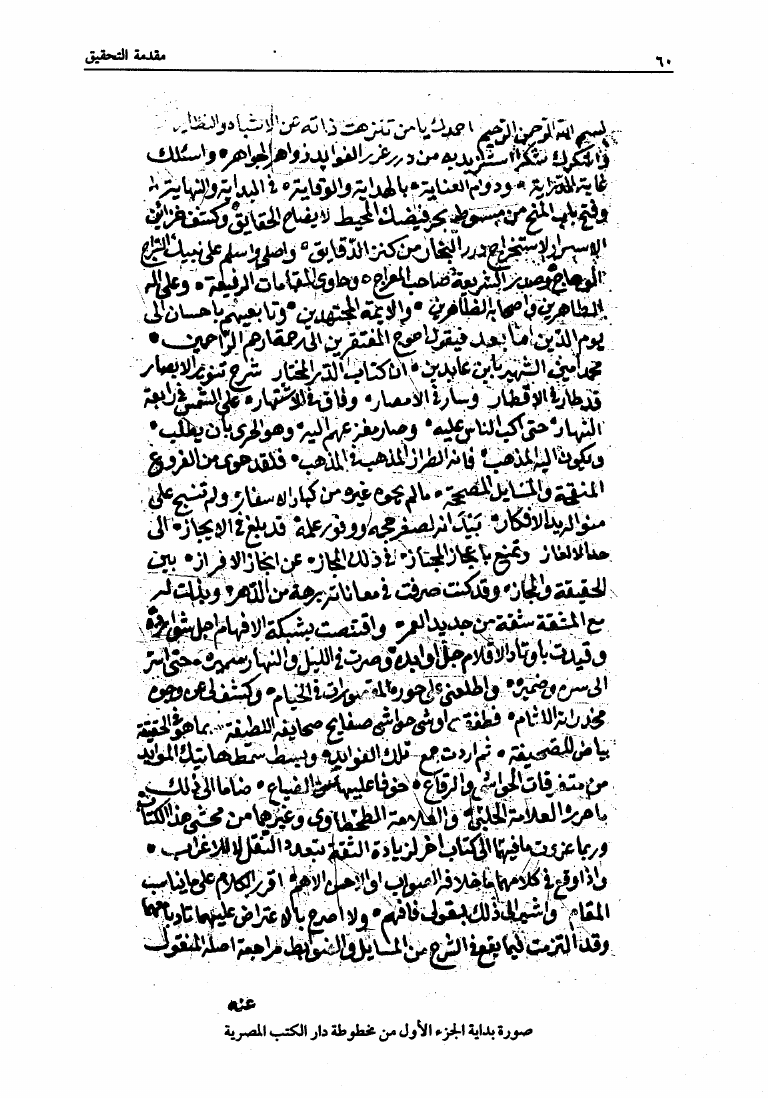 ٦٠ مقدمة التحقيق
بسم الله الرحمن الرحيم احمدك يا من تنزهت ذاته عن الاشباه والنظاير
واشكرك شكرا استزيد به من درر غرر الفوايد زواهر الجواهر واسئلك
غاية الدراية ودوام العناية بالهداية والوقاية في البداية والنهاية
وفتح باب المنح من مبسوط بحر فيضك المحيط لايضاح الحقايق وكشف خزائن
الاسرار لاستخراج درر البحار من كنز الدقايق واصلي واسلم على نبيك السراج
الوهاج وصدر الشريعة صاحب المعراج وحاوي المقامات الرفيعة وعلى اله
الطاهرين واصحابه الظاهرين والايمة المجتهدين وتابعيهم باحسان الى
يوم الدين اما بعد فيقول احوج المفتقرين الى رحمة ارحم الراحمين
محمد امين الشهير بابن عابدين ان كتاب الدر المختار شرح تنوير الابصار
قد طار في الاقطار وسار في الامصار وفاق في الاشتهار على الشمس في رابعة
النهار حتى اكب الناس عليه وصار مفزعهم اليه وهو الحري بان يطلب
ويكون اليه المذهب فانه الطراز المذهب في المذهب فلقد حوى من الفروع
المنقحة والمسايل المصححة ما لم يحوه غيره من كبار الاسفار ولم تنسج على
منواله يد الافكار بيد انه لصغر حجمه ووفور علمه قد بلغ في الايجاز الى
حد الالغاز وتمنع باعجاز المجاز في ذلك المجاز عن انجاز الافراز بين
الحقيقة والمجاز وقد كنت صرفت في معاناته برهة من الدهر وبذلت له
مع المشقة شقة من جديد العمر واقتنصت بشبكة الافهام اجل شوارده
وقيدت باوتاد الاقلام جل اوابده وصرت في الليل والنهار سميره حتى اسر
الى سره وضميره واطلعني على حوره المقصورات في الخيام وكشف لي عن وجوه
مخدراته اللثام فطفقت اوشي حواشي صفايح صحايفه اللطيفة بما هو في الحقيقة
بياض للصحيفة ثم اردت جمع تلك الفوايد وبسط سمط هاتيك الموايد
من متفرقات الحواشي والرقاع خوفا عليها من الضياع ضاما الى ذلك
ما حرره العلامة الحلبي والعلامة الطحطاوي وغيرهما من محشي هذا الكتاب
وربما عزوت ما فيها الى كتاب اخر لزيادة الثقة بتعدد النقل لا للاغراب
واذا وقع في كلامهما ما خلافه الصواب او الاحسن الاهم اقرر الكلام على ما يناسب
المقام واشير الى ذلك بقولي فافهم ولا اصرح بالاعتراض عليهما تادبا معهما
وقد التزمت فيما يقع في الشرح من المسايل والضوابط مراجعة اصله المنقول
عنه
صورة بداية الجزء الأول من مخطوطة دار الكتب المصرية